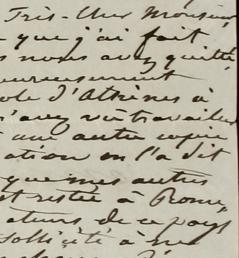 Très-Cher Monsieur
que j'ai fait
nous avez quitté
d'Athènes à
m'avez vu travailler
une autre copie
on l'a dit
que mes autres
restée à Rome,
de ce pays
sollicité à me